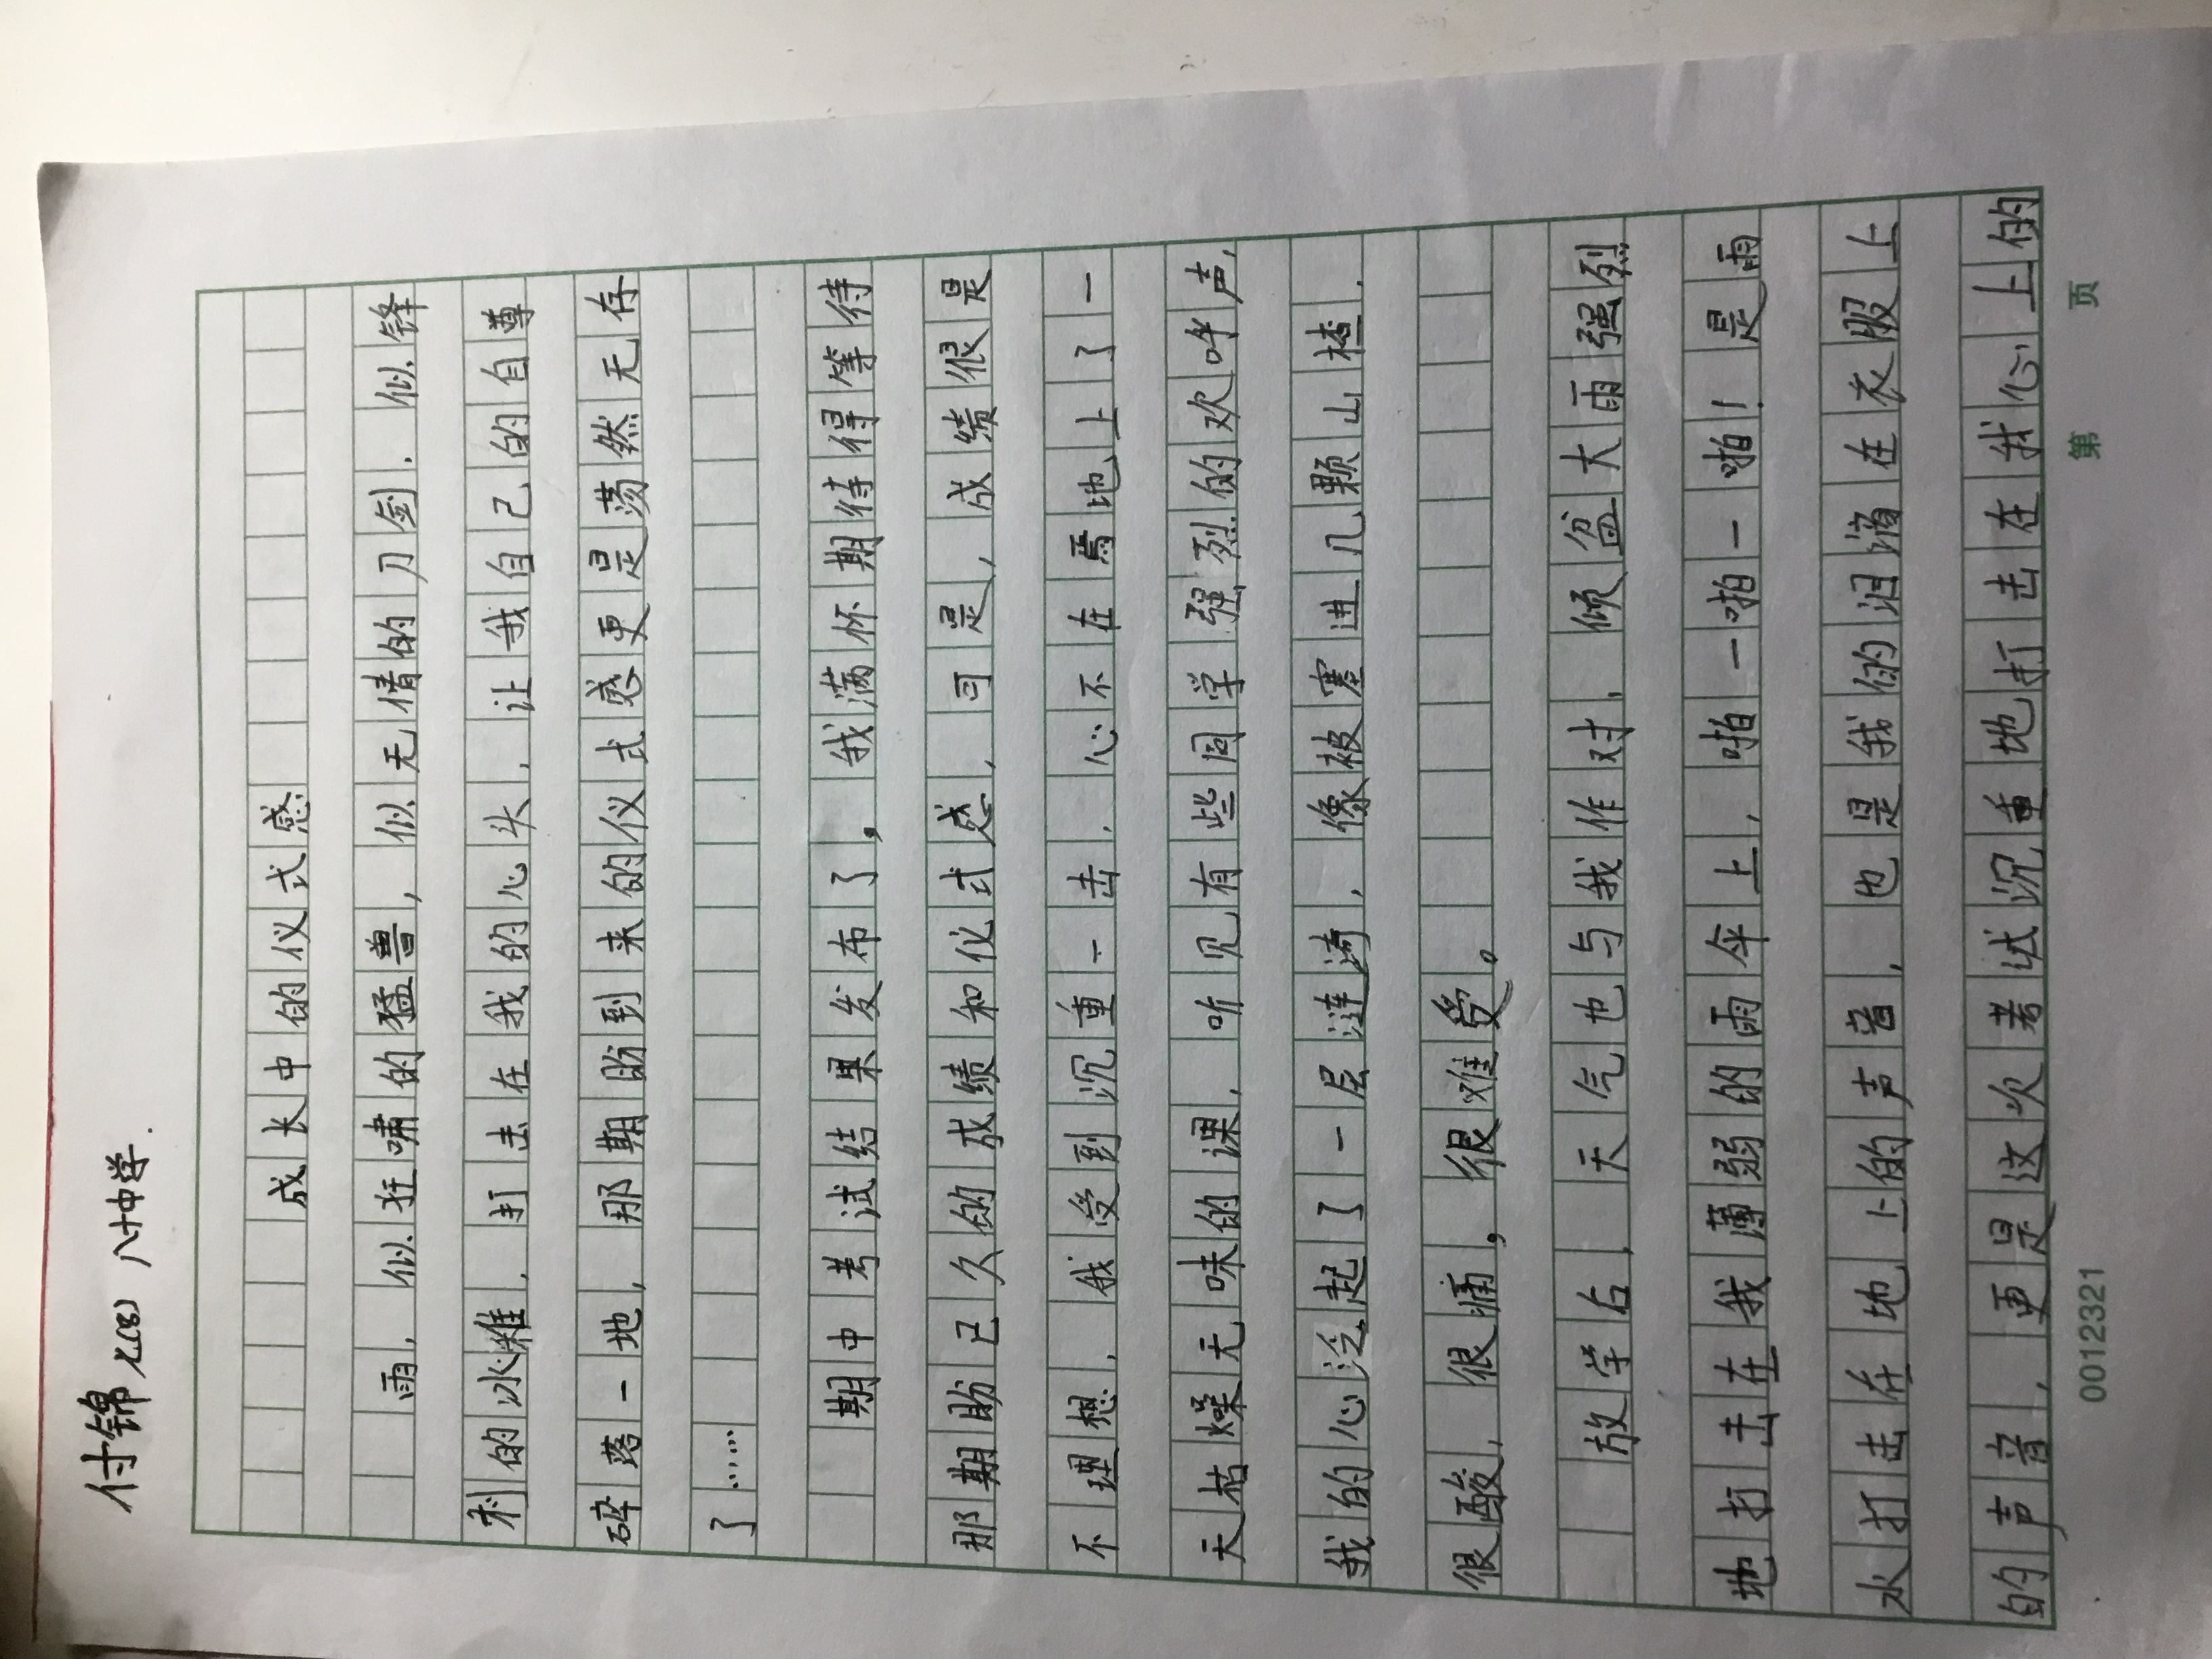 付锦 七(8) 八十中学.
成长中的仪式感
雨，似狂啸的猛兽，似无情的刀剑，似锋
利的冰锥，打击在我的心头，让我自己的自尊
碎落一地，那期盼到来的仪式感更是荡然无存
了……
期中考试结果发布了。我满怀期待得等待
那期盼已久的成绩和仪式感，可是，成绩很是
不理想，我受到沉重一击，心不在焉地上了一
天枯燥无味的课，听见有些同学强烈的欢呼声，
我的心泛起了一层涟漪，像被塞进几颗山楂，
很酸，很痛，很难受。
放学后，天气也与我作对，倾盆大雨强烈
地打击在我薄弱的雨伞上，啪—啪—啪！是雨
水打击在地上的声音，也是我的泪滴在衣服上
的声音，更是这次考试沉重地打击在我心上的
0012321 第 页